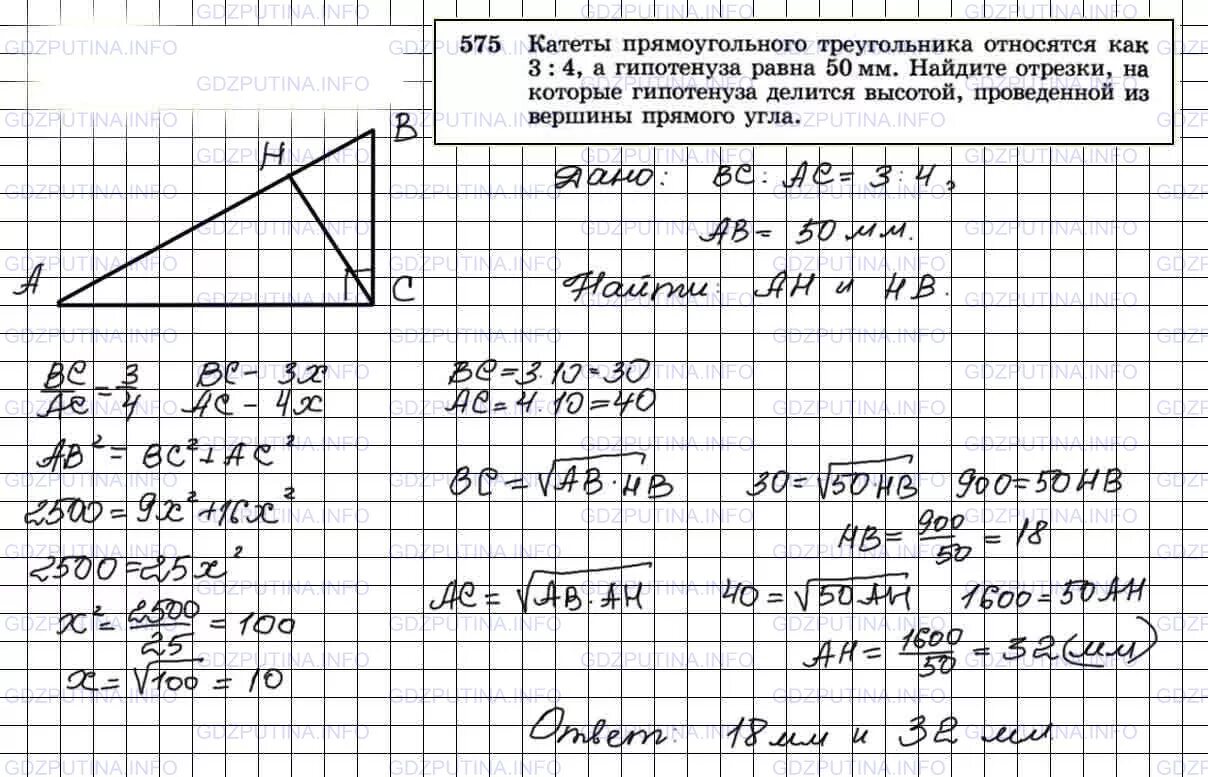 575 Катеты прямоугольного треугольника относятся как
3 : 4, а гипотенуза равна 50 мм. Найдите отрезки, на
которые гипотенуза делится высотой, проведенной из
вершины прямого угла.
B
H
A
C
Дано: BC : AC = 3 : 4,
AB = 50 мм.
Найти: AH и HB.
BC/AC = 3/4 BC - 3x
AC - 4x
AB² = BC² + AC²
2500 = 9x² + 16x²
2500 = 25x²
x² = 2500/25 = 100
x = √100 = 10
BC = 3·10 = 30
AC = 4·10 = 40
BC = √AB·HB 30 = √50HB 900 = 50HB
HB = 900/50 = 18
AC = √AB·AH 40 = √50AH 1600 = 50AH
AH = 1600/50 = 32 (мм)
Ответ: 18 мм и 32 мм.
GDZPUTINA.INFO